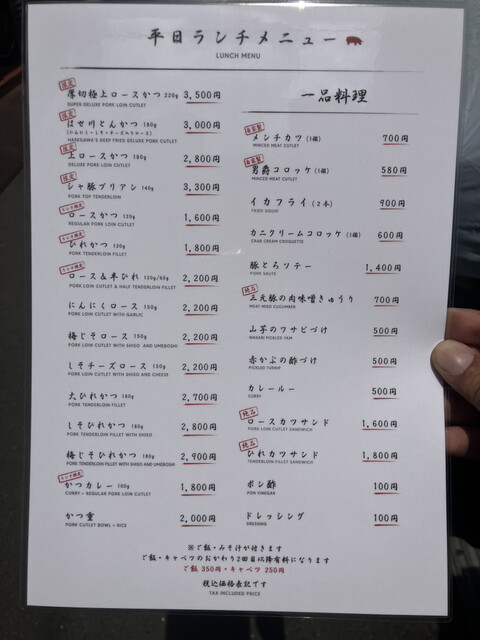 平日ランチメニュー
LUNCH MENU
限定
厚切極上ロースかつ 220g 3,500円
SUPER DELUXE PORK LOIN CUTLET
限定
はせ川とんかつ 180g 3,000円
HASEGAWA'S DEEP FRIED DELUXE PORK CUTLET
限定
上ロースかつ 180g 2,800円
DELUXE PORK LOIN CUTLET
限定
シャ豚ブリアン 140g 3,300円
PORK TOP TENDERLOIN
ランチ限定
ロースかつ 120g 1,600円
REGULAR PORK LOIN CUTLET
ランチ限定
ひれかつ 120g 1,800円
PORK TENDERLOIN FILLET
ランチ限定
ロース&半ひれ 120g/60g 2,200円
PORK LOIN CUTLET & HALF TENDERLOIN FILLET
にんにくロース 150g 2,200円
PORK LOIN CUTLET WITH GARLIC
梅じそロース 150g 2,200円
PORK LOIN CUTLET WITH SHISO AND UMEBOSHI
しそチーズロース 150g 2,200円
PORK LOIN CUTLET WITH SHISO AND CHEESE
大ひれかつ 180g 2,700円
PORK TENDERLOIN FILLET
しそひれかつ 180g 2,800円
PORK TENDERLOIN FILLET WITH SHISO
梅じそひれかつ 180g 2,900円
PORK TENDERLOIN FILLET WITH SHISO AND UMEBOSHI
ランチ限定
かつカレー 120g 1,800円
CURRY + REGULAR PORK LOIN CUTLET
かつ重 2,000円
PORK CUTLET BOWL + RICE
一品料理
自家製
メンチカツ (1個) 700円
MINCED MEAT CUTLET
自家製
男爵コロッケ (1個) 580円
MINCED MEAT CUTLET
イカフライ (2本) 900円
FRIED SQUID
カニクリームコロッケ (1個) 600円
CRAB CREAM CROQUETTE
豚とろソテー 1,400円
PORK SAUTE
絶品
三元豚の肉味噌きゅうり 700円
MEAT MISO CUCUMBER
山芋のワサビづけ 500円
WASABI PICKLED YAM
赤かぶの酢づけ 500円
PICKLED TURNIP
カレールー 500円
CURRY
絶品
ロースカツサンド 1,600円
PORK LOIN CUTLET SANDWICH
絶品
ひれカツサンド 1,800円
TENDERLOIN FILLET SANDWICH
ポン酢 100円
PON VINEGAR
ドレッシング 100円
DRESSING
※ご飯・みそ汁が付きます
ご飯・キャベツのおかわり2回目以降有料になります
ご飯 350円・キャベツ 250円
税込価格表記です
TAX INCLUDED PRICE